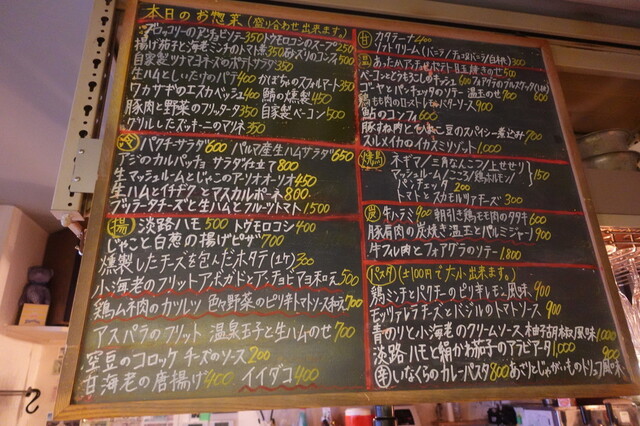 本日のお惣菜(盛り合わせ出来ます。)
ブロッコリーのアンチョビソテー350 トウモロコシのスープ250
揚げ茄子と海老ミンチのトマト煮350
自家製ツナマヨネーズのポテトサラダ 350
生ハムとしいたけのパテ400 かぼちゃのスフォルマート350
ワカサギのエスカベッシュ400 鯖の燻製450
豚肉と野菜のフリッタータ350 自家製ベーコン500
グリルしたズッキーニのマリネ350
冷 パクチーサラダ600 パルマ産生ハムサラダ650
アジのカルパッチョ サラダ仕立て800
生マッシュルームとじゃこのアーリオオーリオ450
生ハムとイチヂクとマスカルポーネ800
ブッラータチーズと生ハムとフルーツトマト1500
揚 淡路ハモ500 トウモロコシ400
じゃこと白葱の揚げピザ700
燻製したチーズを包んだホタテ(1ケ)300
小海老のフリット アボガドとアンチョビマヨ和え500
鶏ムネ肉のカツレツ 色々野菜のピリ辛トマトソース和え700
アスパラのフリット 温泉玉子と生ハムのせ700
空豆のコロッケ チーズのソース200
甘海老の唐揚げ400 イイダコ400
甘 カタラーナ400
ソフトクリーム(バニラ/チョコ/バニラ)300
温 あったかアンチョビポテト 目玉焼きのせ500
ベーコンととうもろこしのキッシュ600
ゴーヤとパンチェッタのソテー 温玉のせ700
鶏モモ肉のロースト レモンバターソース900
鮎のコンフィ600
豚すね肉と白いんげん豆のスパイシー煮込み700
スルメイカのイカスミソリット1.000
焼鳥 ネギマ/三角/なんこつ/上せせり
マッシュルーム/こころ/鶏ホルモン/ 150
パンチェッタ200
トマト スカモルツァチーズ300
炭 牛ハラミ900 朝引き鶏モモ肉のタタキ600
豚肩肉の炭焼き 温玉とパルミジャーノ900
牛フィレ肉とフォアグラのソテー1.800
パスタ(±100円で大小出来ます。)
鶏ミンチとパクチーのピリ辛レモン風味900
モッツァレラチーズとバジルのトマトソース900
青のりと小海老のクリームソース 柚子胡椒風味1.000
淡路ハモと絹かわ茄子のアラビアータ1,000
辛 いなくらのカレーパスタ800 あさりとじゃがいものトリュフ風味900